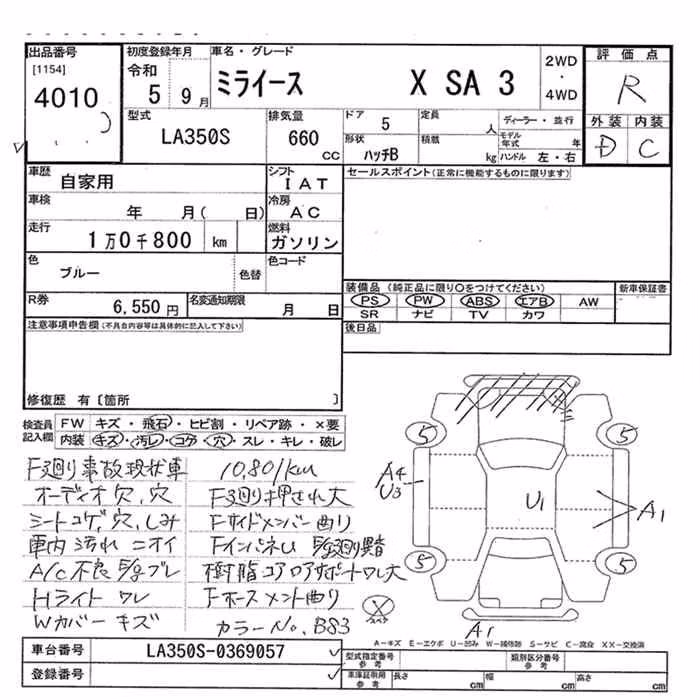 出品番号 初度登録年月 車名・グレード 2WD・4WD 評価点
[1154] 令和 5 9月 ミライース X SA 3 R
4010
型式 LA350S 排気量 660 CC ドア 5 定員 人 ディーラー・並行 外装 内装
形状 ハッチB 積載 kg モデル年式 年 ハンドル 左・右 D C
車歴 自家用 シフト IAT セールスポイント(正常に機能するものに限ります)
車検 年 月( 日) 冷房 AC
走行 1万0千800 km 燃料 ガソリン
色 ブルー 色替 色コード
装備品(純正品に限り○をつけてください) 新車保証書
R券 6,550円 名変通知期限 月 日 PS PW ABS エアB AW
SR ナビ TV カワ
注意事項申告欄(不具合内容等は具体的に記入して下さい) 後日品
修復歴 有〔箇所 〕
検査員記入欄 FW キズ・飛石・ヒビ割・リペア跡・×要
内装 キズ・汚レ・コゲ・穴・スレ・キレ・破レ
F廻り事故現状車 10,801km
オーディオ欠,穴 F廻り押され大
シートコゲ,穴,しみ Fサイドメンバー曲り
車内汚れ ニオイ Fインパネし
A/C不良
Hライト ワレ
Wカバー キズ カラーNo, B83
5 5 5 5
A4
U3
U1
A1
A1
スペア
A-キズ E-エクボ U-凹み W-補修跡 S-サビ C-腐食 XX-交換済
車台番号 LA350S-0369057 型式指定番号 参考 類別区分番号 参考
登録番号 車庫証明用 参考 長さ cm 幅 cm 高さ cm